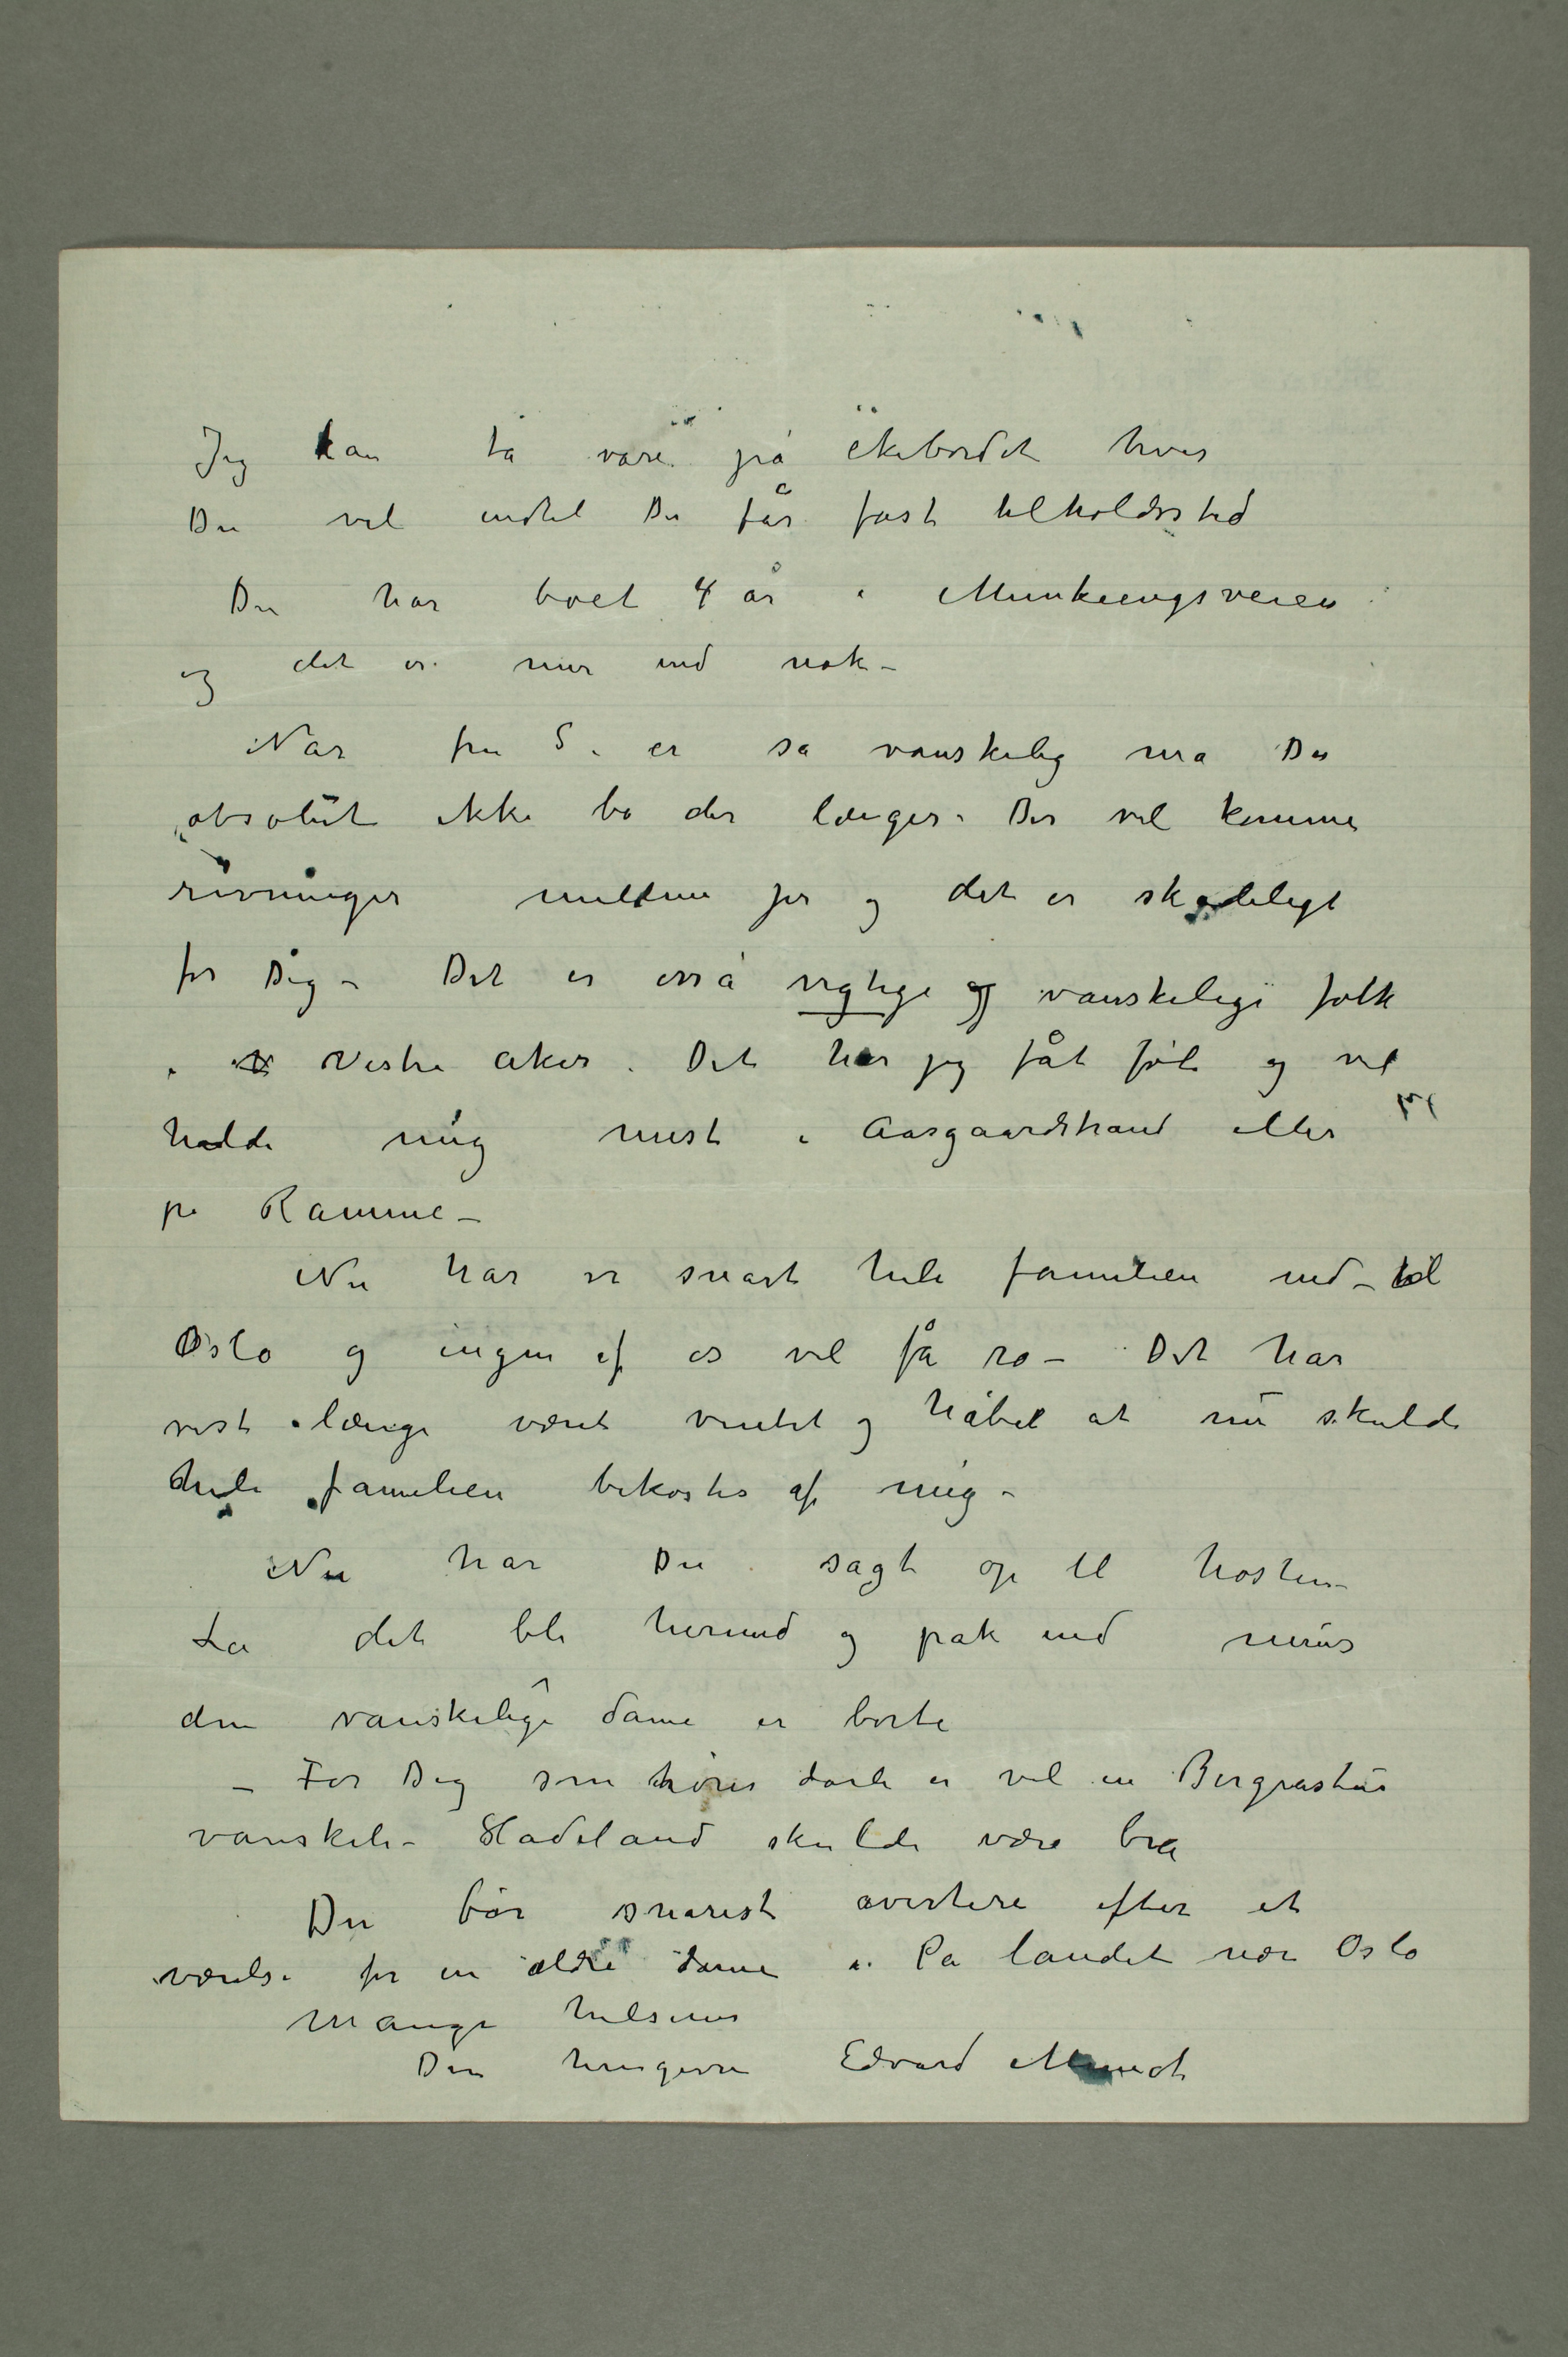 Jeg kan ta vare på ekebordet hvis
Du vil indtil Du får fast tilholdssted
Du har boet 4 år i Munkeengsveien
og det er mer end nok –
Når fru S. er så vanskelig må Du
absolut ikke bo der længer. Der vil komme
rivninger mellem jer og det er skadeligt
for Dig – Det er osså vigtige og vanskelige folk
i Vestre Aker. Det har jeg fåt føle og vil
holde mig mest i Aasgaardstrand eller
på Ramme –
Nu har vi snart hele familien ned – til
Oslo og ingen af os vil få ro – Det har
vist længe været ventet og håbet at nu skulde
hele familien bekostes af mig –
Nu har Du sagt op til høsten –
La det bli hermed og pak ind mens
den vanskelige dame er borte
– For Dig som hører dårli er vel en Bergpashus
vanskeli – Hadeland skulde være bra
Du bør snarest avertere efter et
værelse for en ældre dame i. På landet nær Oslo
Mange hilsener
Din hengivne Edvard Munch